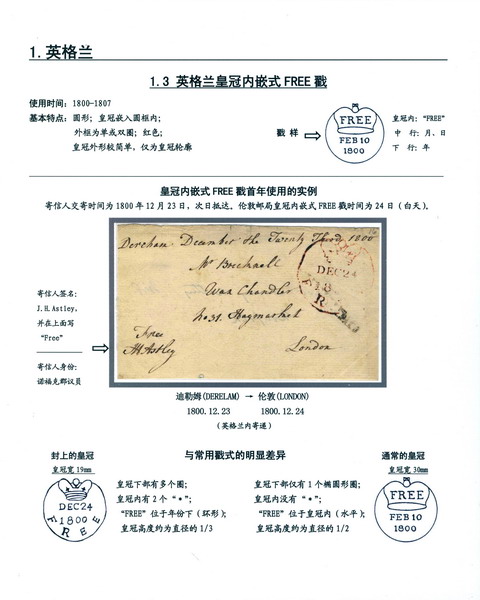 1. 英格兰
1.3 英格兰皇冠内嵌式 FREE 戳
使用时间: 1800-1807
基本特点: 圆形; 皇冠嵌入圆框内;
外框为单或双圈; 红色;
皇冠外形较简单, 仅为皇冠轮廓
戳 样
FREE
FEB 10
1800
皇冠内: “FREE”
中 行: 月、日
下 行: 年
皇冠内嵌式 FREE 戳首年使用的实例
寄信人交寄时间为 1800 年 12 月 23 日, 次日抵达。伦敦邮局皇冠内嵌式 FREE 戳时间为 24 日 (白天)。
Dereham December the Twenty Third 1800
Mr Brecknell
Wax Chandler
No 31. Haymarket
London
Free
JHAstley
DEC 24
1800
FREE
寄信人签名:
J.H.Astley,
并在上面写
“Free”
寄信人身份:
诺福克郡议员
迪勒姆(DERELAM) → 伦敦(LONDON)
1800.12.23 1800.12.24
(英格兰内寄递)
与常用戳式的明显差异
封上的皇冠
皇冠宽 19mm
DEC 24
1800
FREE
皇冠下部有多个圈;
皇冠内有 2 个 “•”;
“FREE” 位于年份下 (环形);
皇冠高度约为直径的 1/3
皇冠下部仅有 1 个椭圆形圈;
皇冠内没有 “•”;
“FREE” 位于皇冠内 (水平);
皇冠高度约为直径的 1/2
通常的皇冠
皇冠宽 30mm
FREE
FEB 10
1800